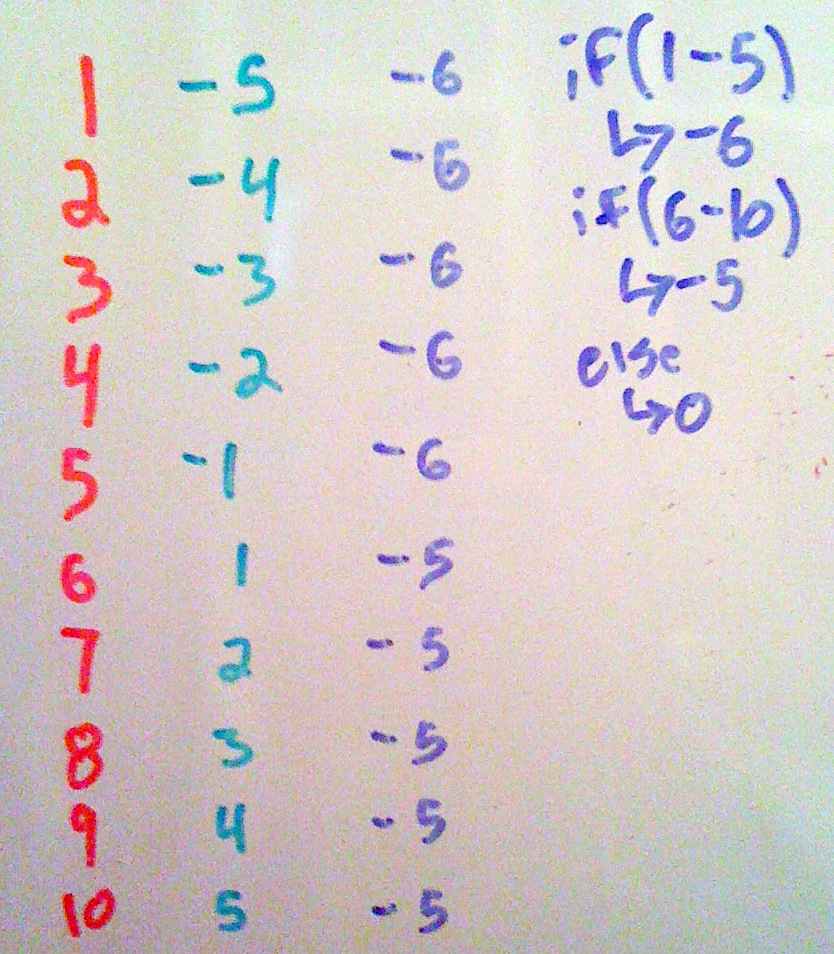 1 -5 -6 if(1-5)
↳ -6
2 -4 -6 if(6-10)
3 -3 -6 ↳ -5
4 -2 -6 else
↳ 0
5 -1 -6
6 1 -5
7 2 -5
8 3 -5
9 4 -5
10 5 -5